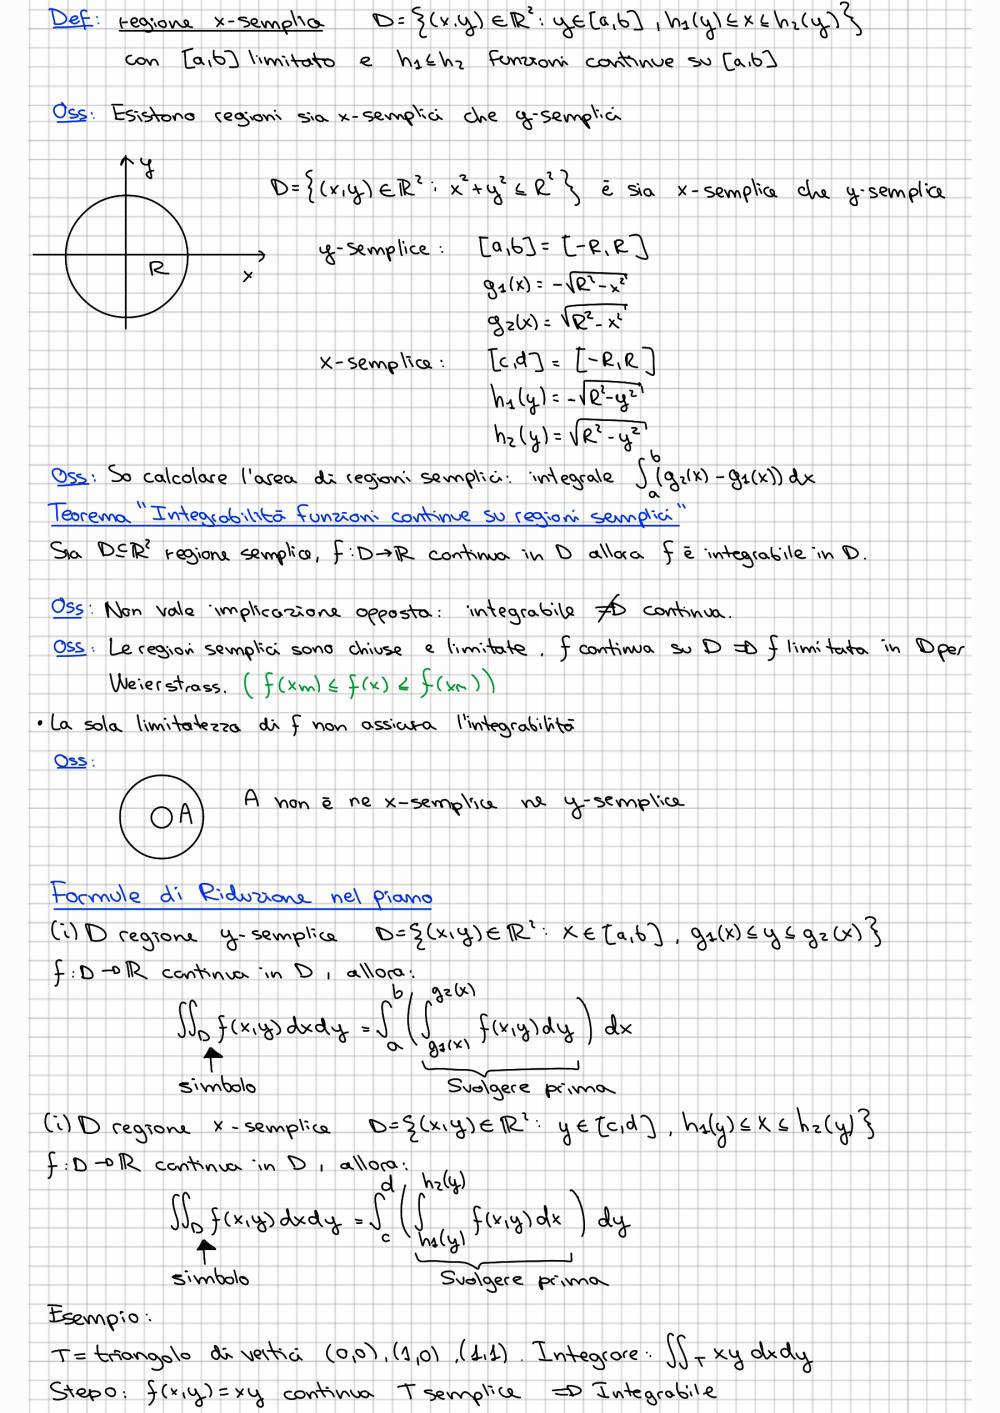 Def: regione x-semplice D={(x,y)∈ℝ²: y∈[a,b], h1(y)≤x≤h2(y)}
con [a,b] limitato e h1≤h2 funzioni continue su [a,b]
Oss: Esistono regioni sia x-semplici che y-semplici
y
D={(x,y)∈ℝ²: x²+y²≤R²} è sia x-semplice che y-semplice
R
x
y-semplice: [a,b]=[-R,R]
g1(x)=-√(R²-x²)
g2(x)=√(R²-x²)
x-semplice: [c,d]=[-R,R]
h1(y)=-√(R²-y²)
h2(y)=√(R²-y²)
Oss: So calcolare l'area di regioni semplici: integrale ∫_a^b (g2(x)-g1(x)) dx
Teorema "Integrabilità funzioni continue su regioni semplici"
Sia D⊆ℝ² regione semplice, f:D→ℝ continua in D allora f è integrabile in D.
Oss: Non vale implicazione opposta: integrabile ⇏ continua.
Oss: Le regioni semplici sono chiuse e limitate, f continua su D ⇒ f limitata in D per
Weierstrass. (f(xm)≤f(x)≤f(xM))
• La sola limitatezza di f non assicura l'integrabilità
Oss:
A
A non è ne x-semplice ne y-semplice
Formule di Riduzione nel piano
(i) D regione y-semplice D={(x,y)∈ℝ²: x∈[a,b], g1(x)≤y≤g2(x)}
f:D→ℝ continua in D, allora:
∬_D f(x,y) dxdy = ∫_a^b (∫_{g1(x)}^{g2(x)} f(x,y) dy) dx
simbolo Svolgere prima
(i) D regione x-semplice D={(x,y)∈ℝ²: y∈[c,d], h1(y)≤x≤h2(y)}
f:D→ℝ continua in D, allora:
∬_D f(x,y) dxdy = ∫_c^d (∫_{h1(y)}^{h2(y)} f(x,y) dx) dy
simbolo Svolgere prima
Esempio:
T= triangolo di vertici (0,0),(1,0),(1,1). Integrare: ∬_T xy dxdy
Step0: f(x,y)=xy continua T semplice ⇒ Integrabile